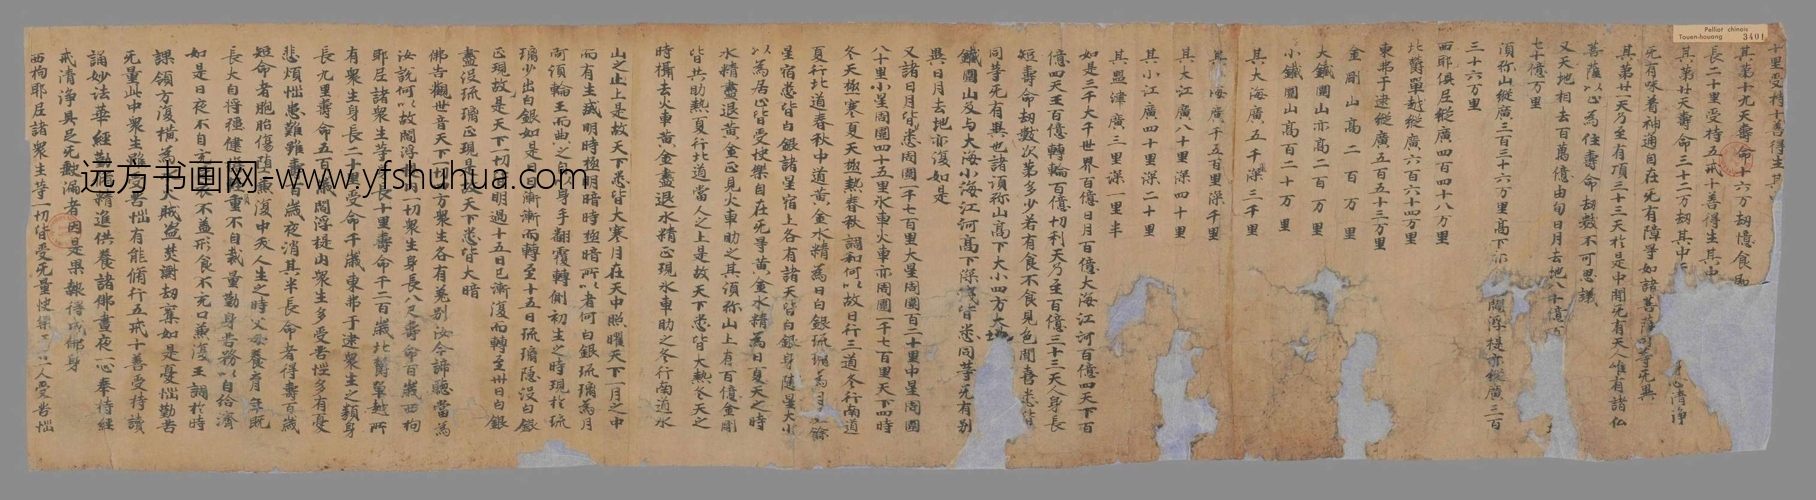 Pelliot chinois
Touen-houang 3401
十里受持十善得生其
其第十九天壽命十六万劫憶食即
長二十里受持五戒十善得生其中
其第廿天壽命三十二万劫其中
死有味着神通自在死有障导如諸菩薩
其第廿天乃至有頂三十三天於是中間死有天人唯有諸仏
菩薩以心為住壽命劫數不可思議
又天地相去百萬億由旬日月去地八十億
七十億万里
須弥山縱廣三百三十六万里高下亦
三十六万里
西耶俱尼縱廣四百四十八万里
北欝單越縱廣六百六十四万里
東弗于逮縱廣五百五十三万里
金剛山高二百万里
大鐵圍山亦高二百万里
小鐵圍山高百二十万里
其大海廣五千深三千里
其小海廣千五百里深千里
其大江廣八十里深四十里
其小江廣四十里深二十里
其盟津廣三里深一里半
如是三千大千世界百億日月百億大海江河百億四天下百
億四天王百億轉輪百億忉利天乃至百億三十三天人身長
短壽命劫數次第多少若有食不食見色聞喜悉皆
同等死有異也諸須弥山高下大小四方大地
鐵圍山及与大海小海江河高下深浅皆悉同等死有別
異日月去地亦復如是
又諸日月皆悉周圍一千七百里大星周圍百二十里中星周圍
八十里小星周圍四十五里氷車火車亦周圍一千七百里天下四時
冬天極寒夏天極熱春秋調和何以故日行三道冬行南道
夏行北道春秋中道黄金水精為日白銀琉璃為月
星宿悉皆白銀諸星宿上各有諸天皆白銀身随星大小
以為居止皆受快樂自在死导黄金水精為日夏天之時
水精盡退黄金正見火車助之其須弥山上有百億金剛
皆共助熱夏行北道當人之上是故天下悉皆大熱冬天之
時攝去火車黄金盡退水精正現氷車助之冬行南道水
山之上是故天下悉皆大寒月在天中照曜天下一月之中
而有生威明時極明暗時極暗所以者何白銀琉璃為月
阿須輪王而典之自身手翻覆轉側初生之時現於琉
璃少出白銀如是漸漸而轉至十五日琉璃隐没白銀
正現故是天下一切明過十五日已漸復而轉至卅日白銀
盡没琉璃正現是故天下悉皆大暗
佛告觀世音天下四方衆生各有差别汝今諦聽當為
汝說何以故閻浮内一切衆生身長八尺壽命百歲西拘
耶尼諸衆生等身長十里壽命千二百歲北欝單越所
有衆生身長二十里受命千歲東弗于逮衆生之類身
長九里壽命五百歲閻浮提山衆生多受苦惱多有憂
悲煩惱患難難壽百歲夜消其半長命者得壽百歲
短命者胞胎傷堕兼復中夭人生之時父母養育年既
長大自得種健
如是日夜不自 不盖形食不充口兼復王調於時
課領方復横為人賊盗焚溺劫棄如是憂惱勤苦
死量此中衆生雖受苦惱有能脩行五戒十善受持讀
誦妙法華經 精進供養諸佛晝夜一心奉侍經
戒清净具足死歉漏者因是果報得成佛身
西拘耶尼諸衆生等一切皆受死量快樂 人受苦惱
远方书画网-www.yfshuhua.com